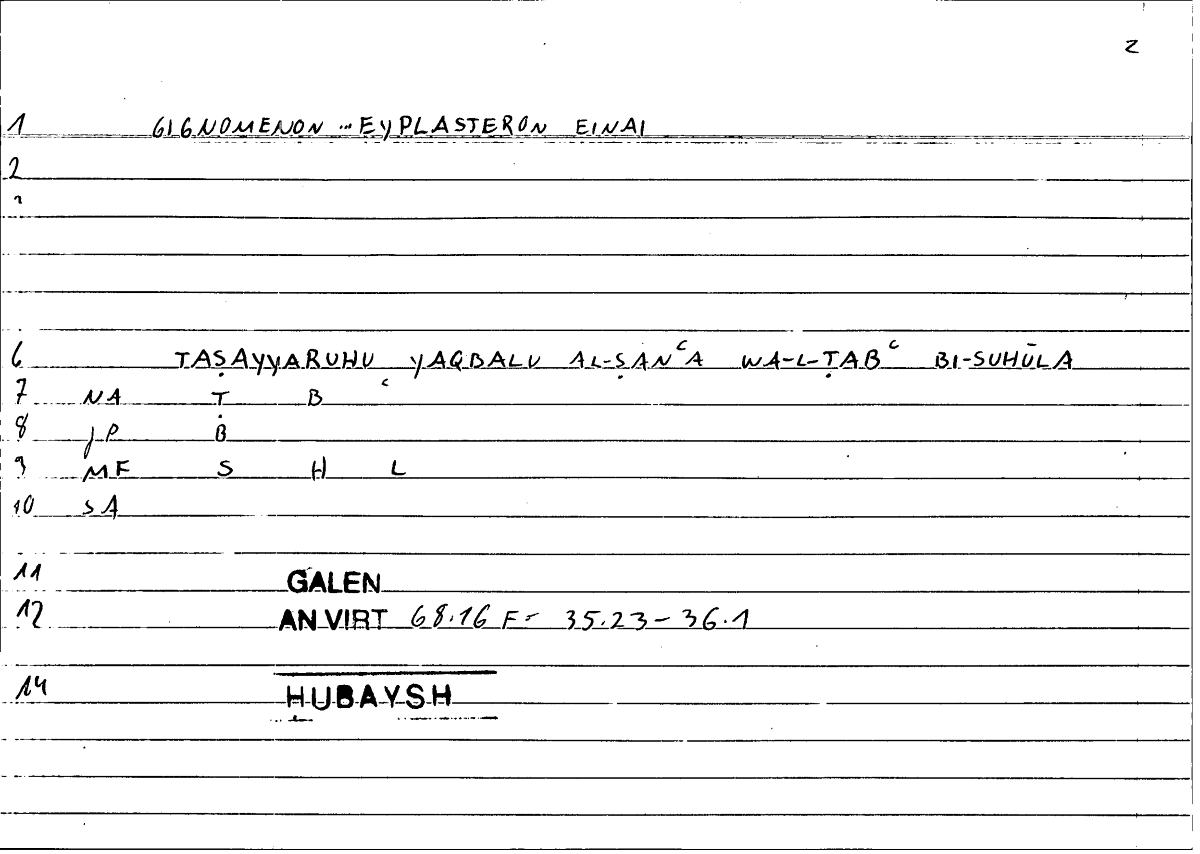 2
1 GIGNOMENON ... EYPLASTERON EINAI
2
6 TAṢAYYARUHU YAQBALU AL-ṢANᶜA WA-L-ṬABᶜ BI-SUHŪLA
7 NA Ṭ B ᶜ
8 JP B
9 MF S H L
10 SA
11 GALEN
12 AN VIRT 68.16 F= 35.23-36.1
14 HUBAYSH